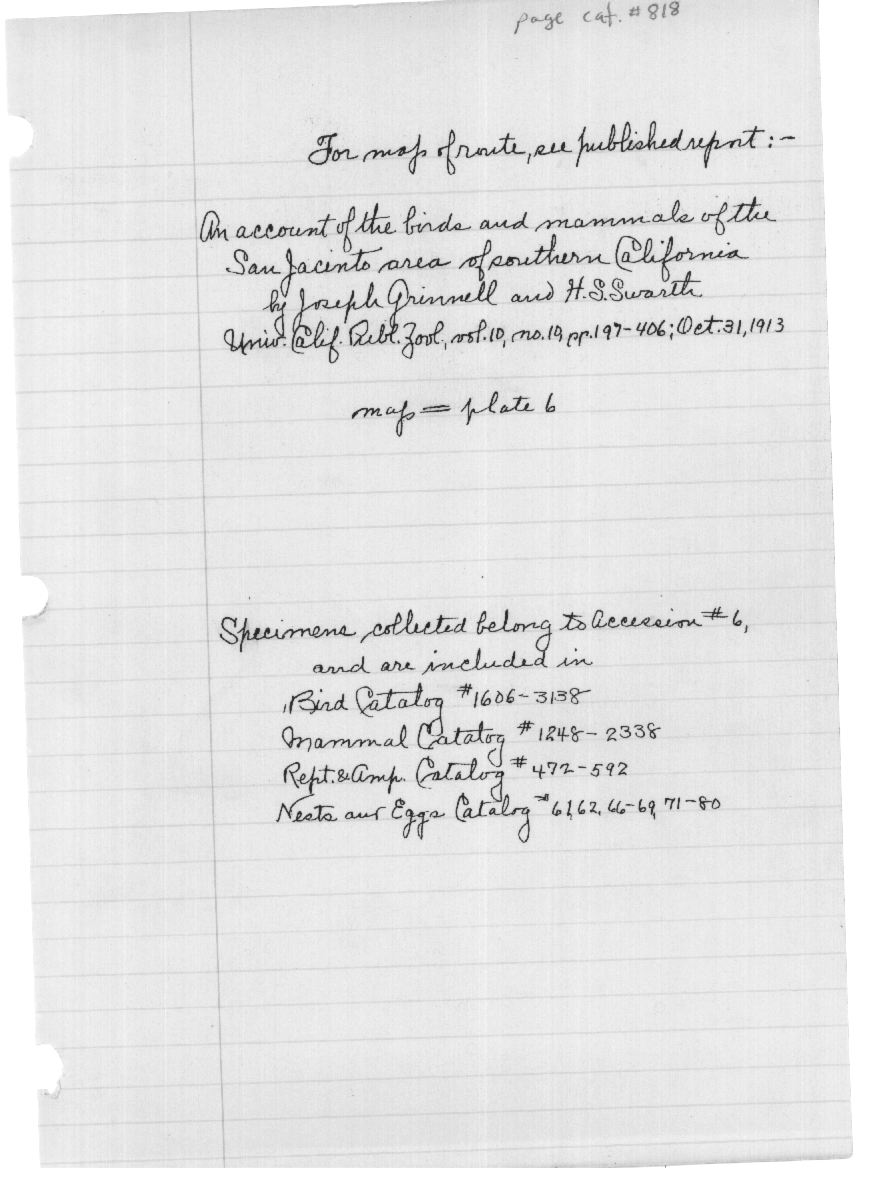 page cat. #818
For map of route, see published report:-
An account of the birds and mammals of the
San Jacinto area of southern California
by Joseph Grinnell and H.S. Swarth
Univ. Calif. Publ. Zool., vol. 10, no. 10, pp. 197-406; Oct. 31, 1913
map = plate 6
Specimens collected belong to Accession #6,
and are included in
Bird Catalog #1606-3138
Mammal Catalog #1248-2338
Rept. & Amp. Catalog #472-592
Nests and Eggs Catalog #61, 62, 66-69, 71-80